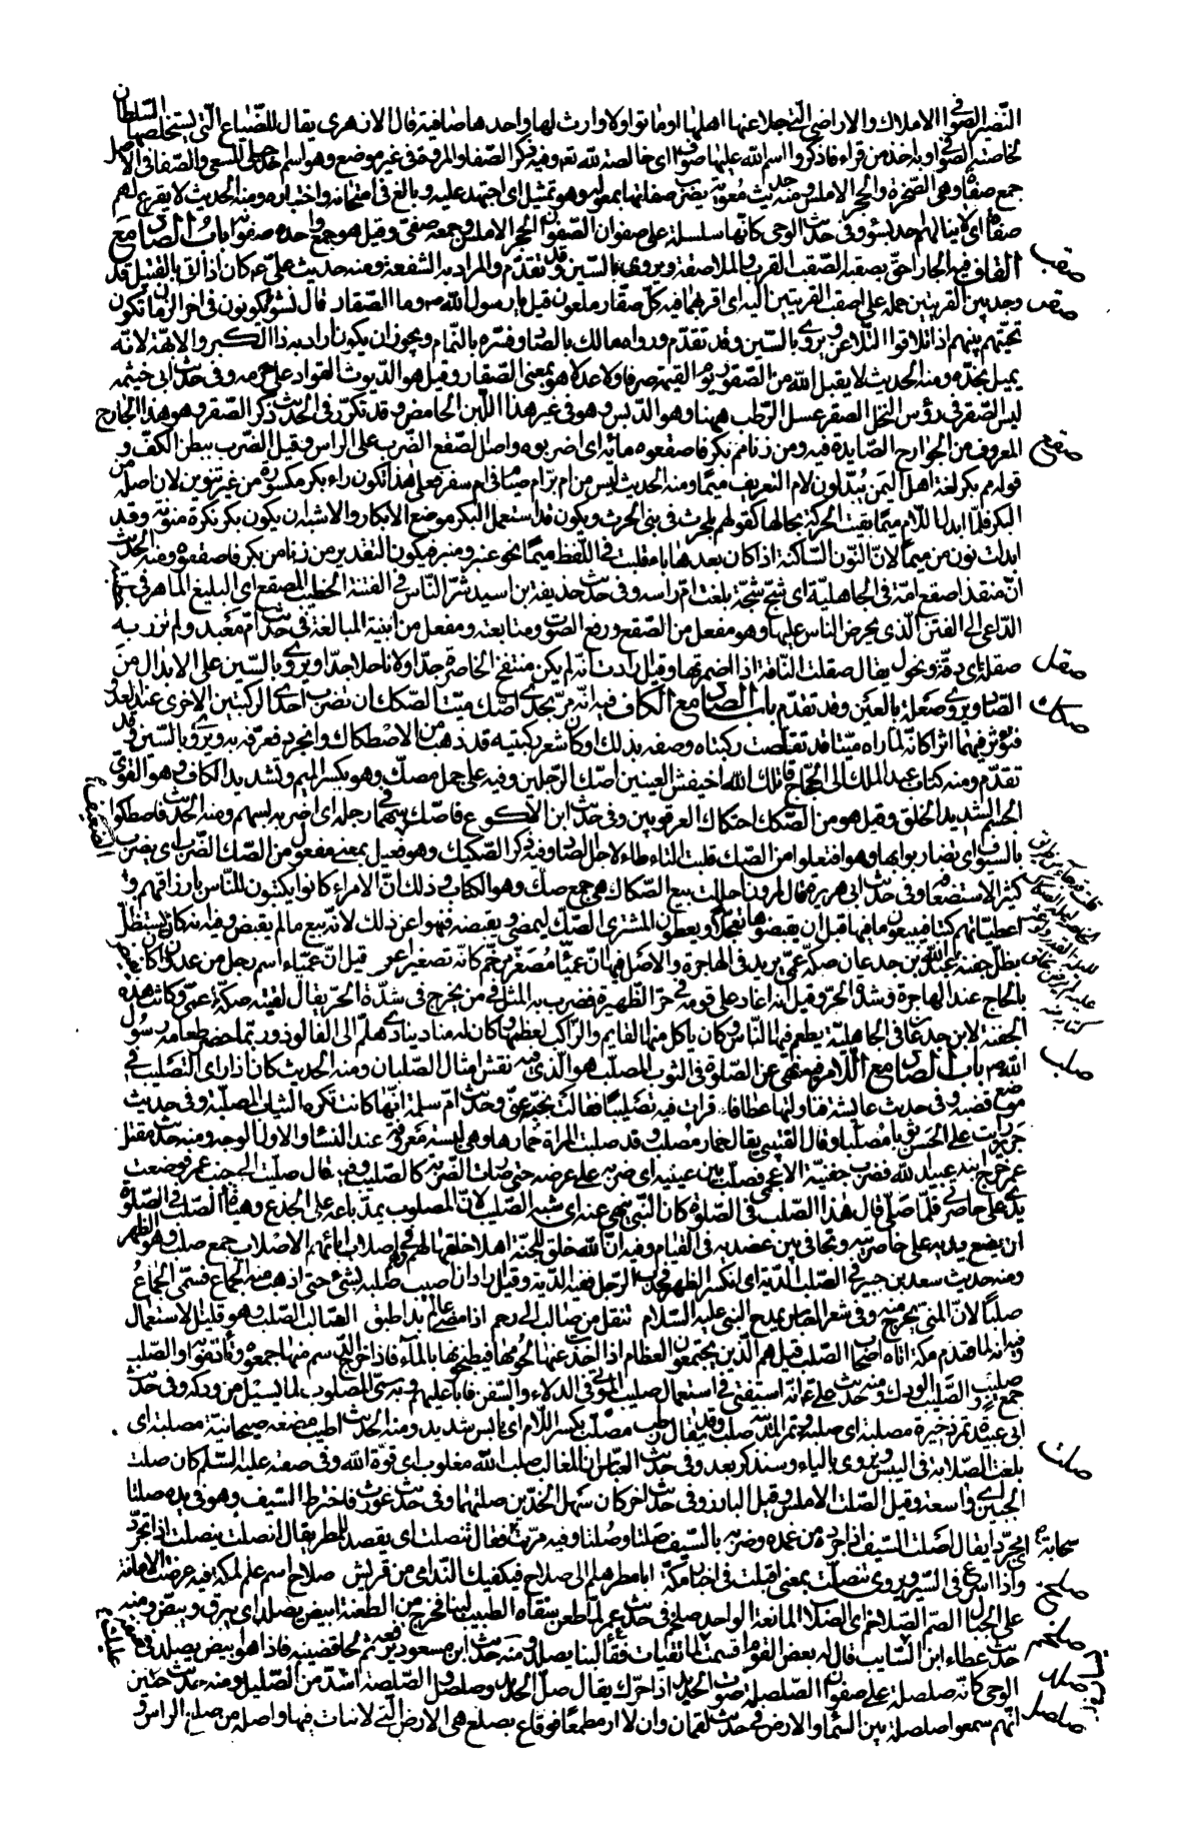 النضير الصوافي الاملاك والاراضي التي جلا عنها اهلها او ماتوا ولا وارث لها واحدها صافية قال الازهري يقال للضياع التي يستخلصها السلطان
لخاصته الصوافي وبه اخذ من قراء فاذكروا اسم الله عليها صوافي اي خالصة لله تعالى وفيه ذكر الصفا والمروة في غير موضع وهو اسم احد جبلي المسعى والصفا في الاصل
جمع صفاة وهي الصخرة والحجر الاملس ومنه حديث معوية يضرب صفاتها بمعوله وهو تمثيل اي اجتهد عليه وبالغ في امتحانه واختباره ومنه الحديث لا يقرع لهم
صفاة اي لا ينالهم احد بسوء وفي حديث الوحي كانها سلسلة على صفوان الصفوان الحجر الاملس وجمعه صفي وقيل هو جمع واحده صفوانة باب الصاد مع
القاف فيه الجار احق بصقبه الصقب القرب والملاصقة ويروى بالسين وقد تقدم والمراد به الشفعة ومنه حديث علي كان اذا اتي بالقتيل قد
وجد بين القريتين حمله على اصقب القريتين اليه اي اقربهما فيه كل صقار ملعون قيل يا رسول الله وما الصقار قال نشؤ يكونون في اخر الزمان تكون
تحيتهم بينهم اذا تلاقوا التلاعن ويروى بالسين وقد تقدم ورواه مالك بالصاد وفسره بالنمام ويجوز ان يكون اراد به ذا الكبر والابهة لانه
يميل بخده ومنه الحديث لا يقبل الله من الصقور يوم القيمة صرفا ولا عدلا هو بمعنى الصقار وقيل هو الديوث القواد على حرمه وفي حديث ابي خيثمه
ليس الصقر في رؤس النخل الصقر عسل الرطب ههنا وهو الدبس وهو في غير هذا اللبن الحامض وقد تكرر في الحديث ذكر الصقر وهو هذا الجارح
المعروف من الجوارح الصايدة فيه ومن زنا مم بكر فاصقعوه مائة اي اضربوه واصل الصقع الضرب على الراس وقيل الضرب ببطن الكف و
قوله مم بكر لغة اهل اليمن يبدلون لام التعريف ميما ومنه الحديث ليس من ام بر ام صيام في ام سفر فعلى هذا تكون راء بكر مكسورة من غير تنوين لان اصله من
البكر فلما ابدل اللام ميما بقيت الحركة بحالها كقولهم بلحرث في بني الحرث ويكون قد استعمل البكر موضع الابكار والاشبه ان يكون بكر نكرة منونة وقد
ابدلت نون من ميما لان النون الساكنة اذا كان بعدها باء قلبت في اللفظ ميما نحو عنبر ومنبر فيكون التقدير من زنا من بكر فاصقعوه ومنه الحديث
ان منقذا صقع امة في الجاهلية اي شج شجة بلغت ام راسه وفي حديث حذيفة بن اسيد شر الناس في الفتنة الخطيب المصقع اي البليغ الماهر في خطبته
الداعي الى الفتن الذي يحرض الناس عليها وهو مفعل من الصقع ورفع الصوت ومتابعته ومفعل من ابنية المبالغة في حديث ام معبد ولم تزر به
صقلة اي دقة ونحول يقال صقلت الناقة اذا اضمرتها وقيل ارادت انه لم يكن منتفخ الخاصرة جدا ولا ناحلا جدا ويروى بالسين على الابدال من
الصاد ويروى صعلة بالعين وقد تقدم باب الصاد مع الكاف فيه انه مر بجدي اصك ميت الصكك ان تضرب احدى الركبتين الاخرى عند العدو
فتؤثر فيهما اثرا كانه لما راه ميتا قد تقلصت ركبتاه وصفه بذلك او كان شعر ركبتيه قد ذهب من الاصطكاك وانجرد فعرفه به ويروى بالسين وقد
تقدم ومنه كتاب عبد الملك الى الحجاج قاتلك الله اخيفش العينين اصك الرجلين وفيه على جمل مصك وهو بكسر الميم وتشديد الكاف وهو القوي
الجسم الشديد الخلق وقيل هو من الصكك احتكاك العرقوبين وفي حديث ابن الاكوع فاصك سهما في رجله اي اضربه بسهم ومنه الحديث فاصطكوا
بالسيوف اي تضاربوا بها وهو افتعلوا من الصك قلبت التاء طاء لاجل الصاد وفيه ذكر الصكيك وهو فعيل بمعنى مفعول من الصك الضرب اي يضرب
كثيرا لاستضعافه وفي حديث ابي هريرة قال لمروان احللت بيع الصكاك هي جمع صك وهو الكتاب وذلك ان الامراء كانوا يكتبون للناس بارزاقهم و
اعطياتهم كتبا فيبيعون ما فيها قبل ان يقبضوها تعجلا ويعطون المشتري الصك ليمضي ويقبضه فنهوا عن ذلك لانه بيع ما لم يقبض وفيه انه كان يستظل
بظل جفنة عبد الله بن جدعان صكة عمي يريد في الهاجرة والاصل فيها ان عميا مصغر مرخم كانه تصغير اعمى قيل ان عمياء اسم رجل من عدوان كان يفيض
بالحاج عند الهاجرة وشدة الحر وقيل انه اغار على قومه في حر الظهيرة فضرب به المثل في من يخرج في شدة الحر يقال لقيته صكة عمي وكانت هذه
الجفنة لابن جدعان في الجاهلية يطعم فيها الناس وكان ياكل منها القايم والراكب لعظمها وكان له مناد ينادي هلم الى الفالوذ وربما حضر طعامه رسول
الله باب الصاد مع اللام فيه نهى عن الصلوة في الثوب المصلب هو الذي فيه نقش امثال الصلبان ومنه الحديث كان اذا راى التصليب في
موضع قضبه وفي حديث عايشة فناولتها عطافا فرات فيه تصليبا فقالت نحيه عني وحديث ام سلمة انها كانت تكره الثياب المصلبة وفي حديث
جرير رايت على الحسن ثوبا مصلبا وقال القتيبي يقال خمار مصلب وقد صلبت المراة خمارها وهي لبسة معروفة عند النساء والاول الوجه ومنه حديث مقتل
عمر خرج ابنه عبيد الله فضرب جفينة الاعجمي فصلب بين عينيه اي ضربه على عرضه حتى صارت الضربة كالصليب وفيه قال صليت الى جنب عمر فوضعت
يدي على خاصرتي فلما صلى قال هذا الصلب في الصلوة كان النبي ينهى عنه اي شبه الصليب لان المصلوب يمد باعه على الجذع وهيئة الصلب في الصلوة
ان يضع يديه على خاصرتيه ويجافي بين عضديه في القيام وفيه ان الله خلق للجنة اهلا خلقها لهم وهم في اصلاب ابائهم الاصلاب جمع صلب وهو الظهر
ومنه حديث سعد بن جبير في الصلب الدية اي انكسر الظهر فحدب الرجل ففيه الدية وقيل اراد ان اصيب صلبه بشيء حتى اذهب منه الجماع فسمى الجماع
صلبا لان المني يخرج منه وفي شعر العباس يمدح النبي عليه السلام تنقل من صالب الى رحم اذا مضى عالم بدا طبق الصالب الصلب وهو قليل الاستعمال
وفيه انه لما قدم مكة اتاه اصحاب الصلب قيل هم الذين يجتمعون العظام اذا اخذت عنها لحومها فيطبخونها بالماء فاذا خرج الدسم منها جمعوه وتادموا به والصلب
جمع صليب والصليب الودك ومنه حديث علي انه استفتي في استعمال صليب الموتى في الدلاء والسفن فابى عليهم وبه سمي المصلوب لما يسيل من ودكه وفي حديث
ابي عبيدة تمر ذخيرة مصلبة اي صلبة وتمر المدينة صلب وقد يقال رطب مصلب بكسر اللام اي يابس شديد ومنه الحديث اطيب مضغة صيحانية مصلبة اي
بلغت الصلابة في اليبس ويروى بالياء وسنذكر بعد وفي حديث العباس ان المغالب صلب الله مغلوب اي قوة الله وفي صفته عليه السلم كان صلت
الجبين اي واسعه وقيل الصلت الاملس وقيل البارز وفي حديث اخر كان سهل الخدين صلتهما وفي حديث غورث فاخترط السيف وهو في يده صلتا
اي مجردا يقال اصلت السيف اذا جرده من غمده وضربه بالسيف صلتا وصلتا وفيه مرت سحابة فقال تنصلت اي يقصد للمطر يقال انصلت ينصلت اذا تجرد
واذا اسرع في السير ويروى تنصلت بمعنى اقبلت في اخبار مكة ابا مطر هلم الى صلاح فيكفيك الندامى من قريش صلاح اسم علم لمكة فيه عرضت الامانة
على الجبال الصم الصلاخم اي الصلاب المانعة الواحد صلخم في حديث عمر لما طعن سقاه الطبيب لبنا فخرج من الطعنة ابيض يصلد اي يبرق ويبض ومنه
حديث عطاء ابن السايب قال له بعض القوم اقسمت لما تقيات فقاء لبنا يصلد ومنه حديث ابن مسعود يرفعه ثم لحا قضيبه فاذا هو ابيض يصلد في
الوحي كانه صلصلة على صفوان الصلصلة صوت الحديد اذا حرك يقال صل الحديد وصلصل والصلصلة اشد من الصليل ومنه حديث حنين
انهم سمعوا صلصلة بين السماء والارض في حديث لقمان وان لا ار مطمعا فوقاع بصلع هي الارض التي لا نبات فيها واصله من صلع الراس و
صقب
صقر
صقع
صقل
صكك
صلب
صلت
سحابة
صلح
صلخم
صلد
صلصل